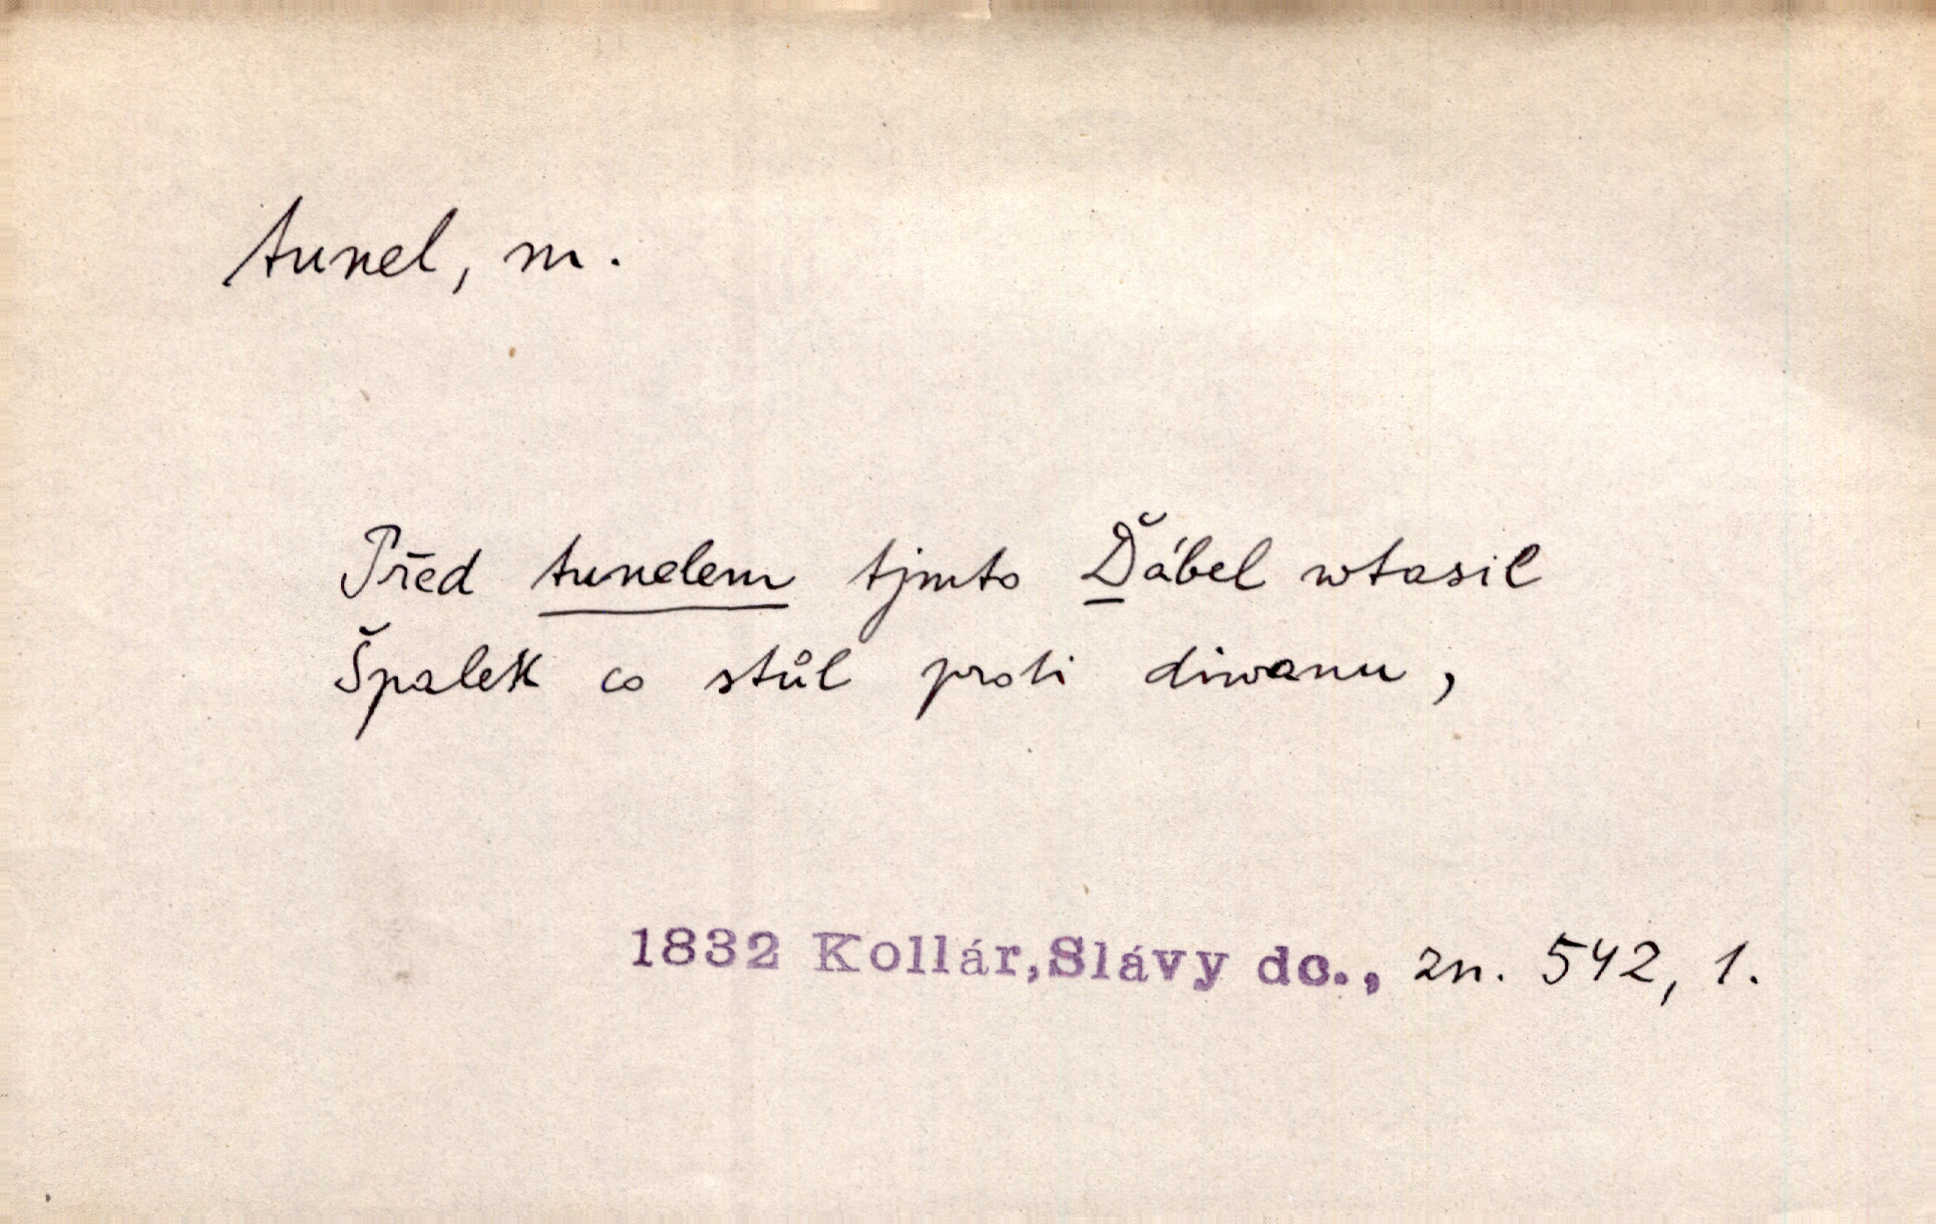 tunel, m.
Před tunelem tjmto Ďábel wtasil
Špalek co stůl proti diwanu,
1832 Kollár,Slávy dc., zn. 542, 1.